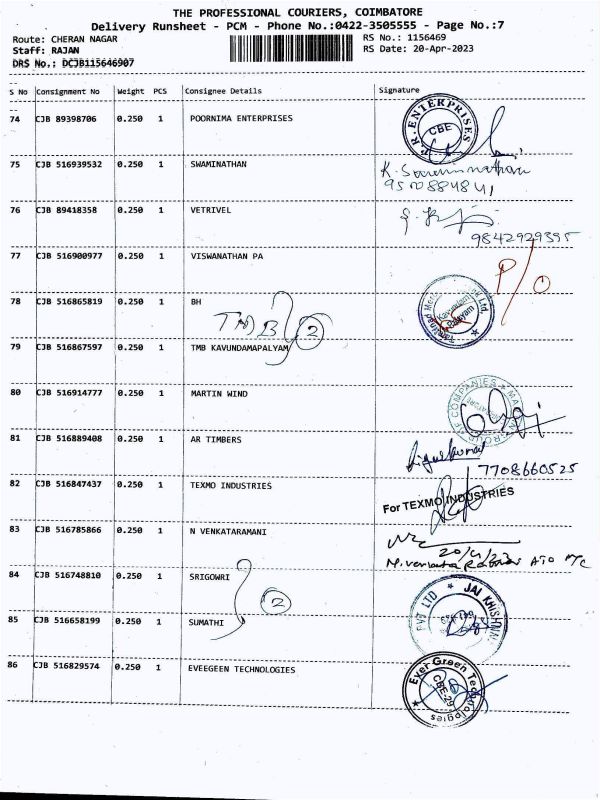 THE PROFESSIONAL COURIERS, COIMBATORE
Delivery Runsheet - PCM - Phone No.:0422-3505555 - Page No.:7
Route: CHERAN NAGAR RS No.: 1156469
Staff: RAJAN RS Date: 20-Apr-2023
DRS No.: DCJB115646907
S No Consignment No Weight PCS Consignee Details Signature
74 CJB 89398706 0.250 1 POORNIMA ENTERPRISES
ENTERPRISES
CBE
75 CJB 516939532 0.250 1 SWAMINATHAN
76 CJB 89418358 0.250 1 VETRIVEL
9842929395
77 CJB 516900977 0.250 1 VISWANATHAN PA
P/O
78 CJB 516865819 0.250 1 BH
TMB 2
79 CJB 516867597 0.250 1 TMB KAVUNDAMAPALYAM
80 CJB 516914777 0.250 1 MARTIN WIND
81 CJB 516889408 0.250 1 AR TIMBERS
7708660525
82 CJB 516847437 0.250 1 TEXMO INDUSTRIES
For TEXMO INDUSTRIES
83 CJB 516785866 0.250 1 N VENKATARAMANI
20/4/23
84 CJB 516748810 0.250 1 SRIGOWRI
2
PVT LTD * JAI KHISHNA
85 CJB 516658199 0.250 1 SUMATHI
86 CJB 516829574 0.250 1 EVEGEEN TECHNOLOGIES
Ever Green Technologies
CBE-29